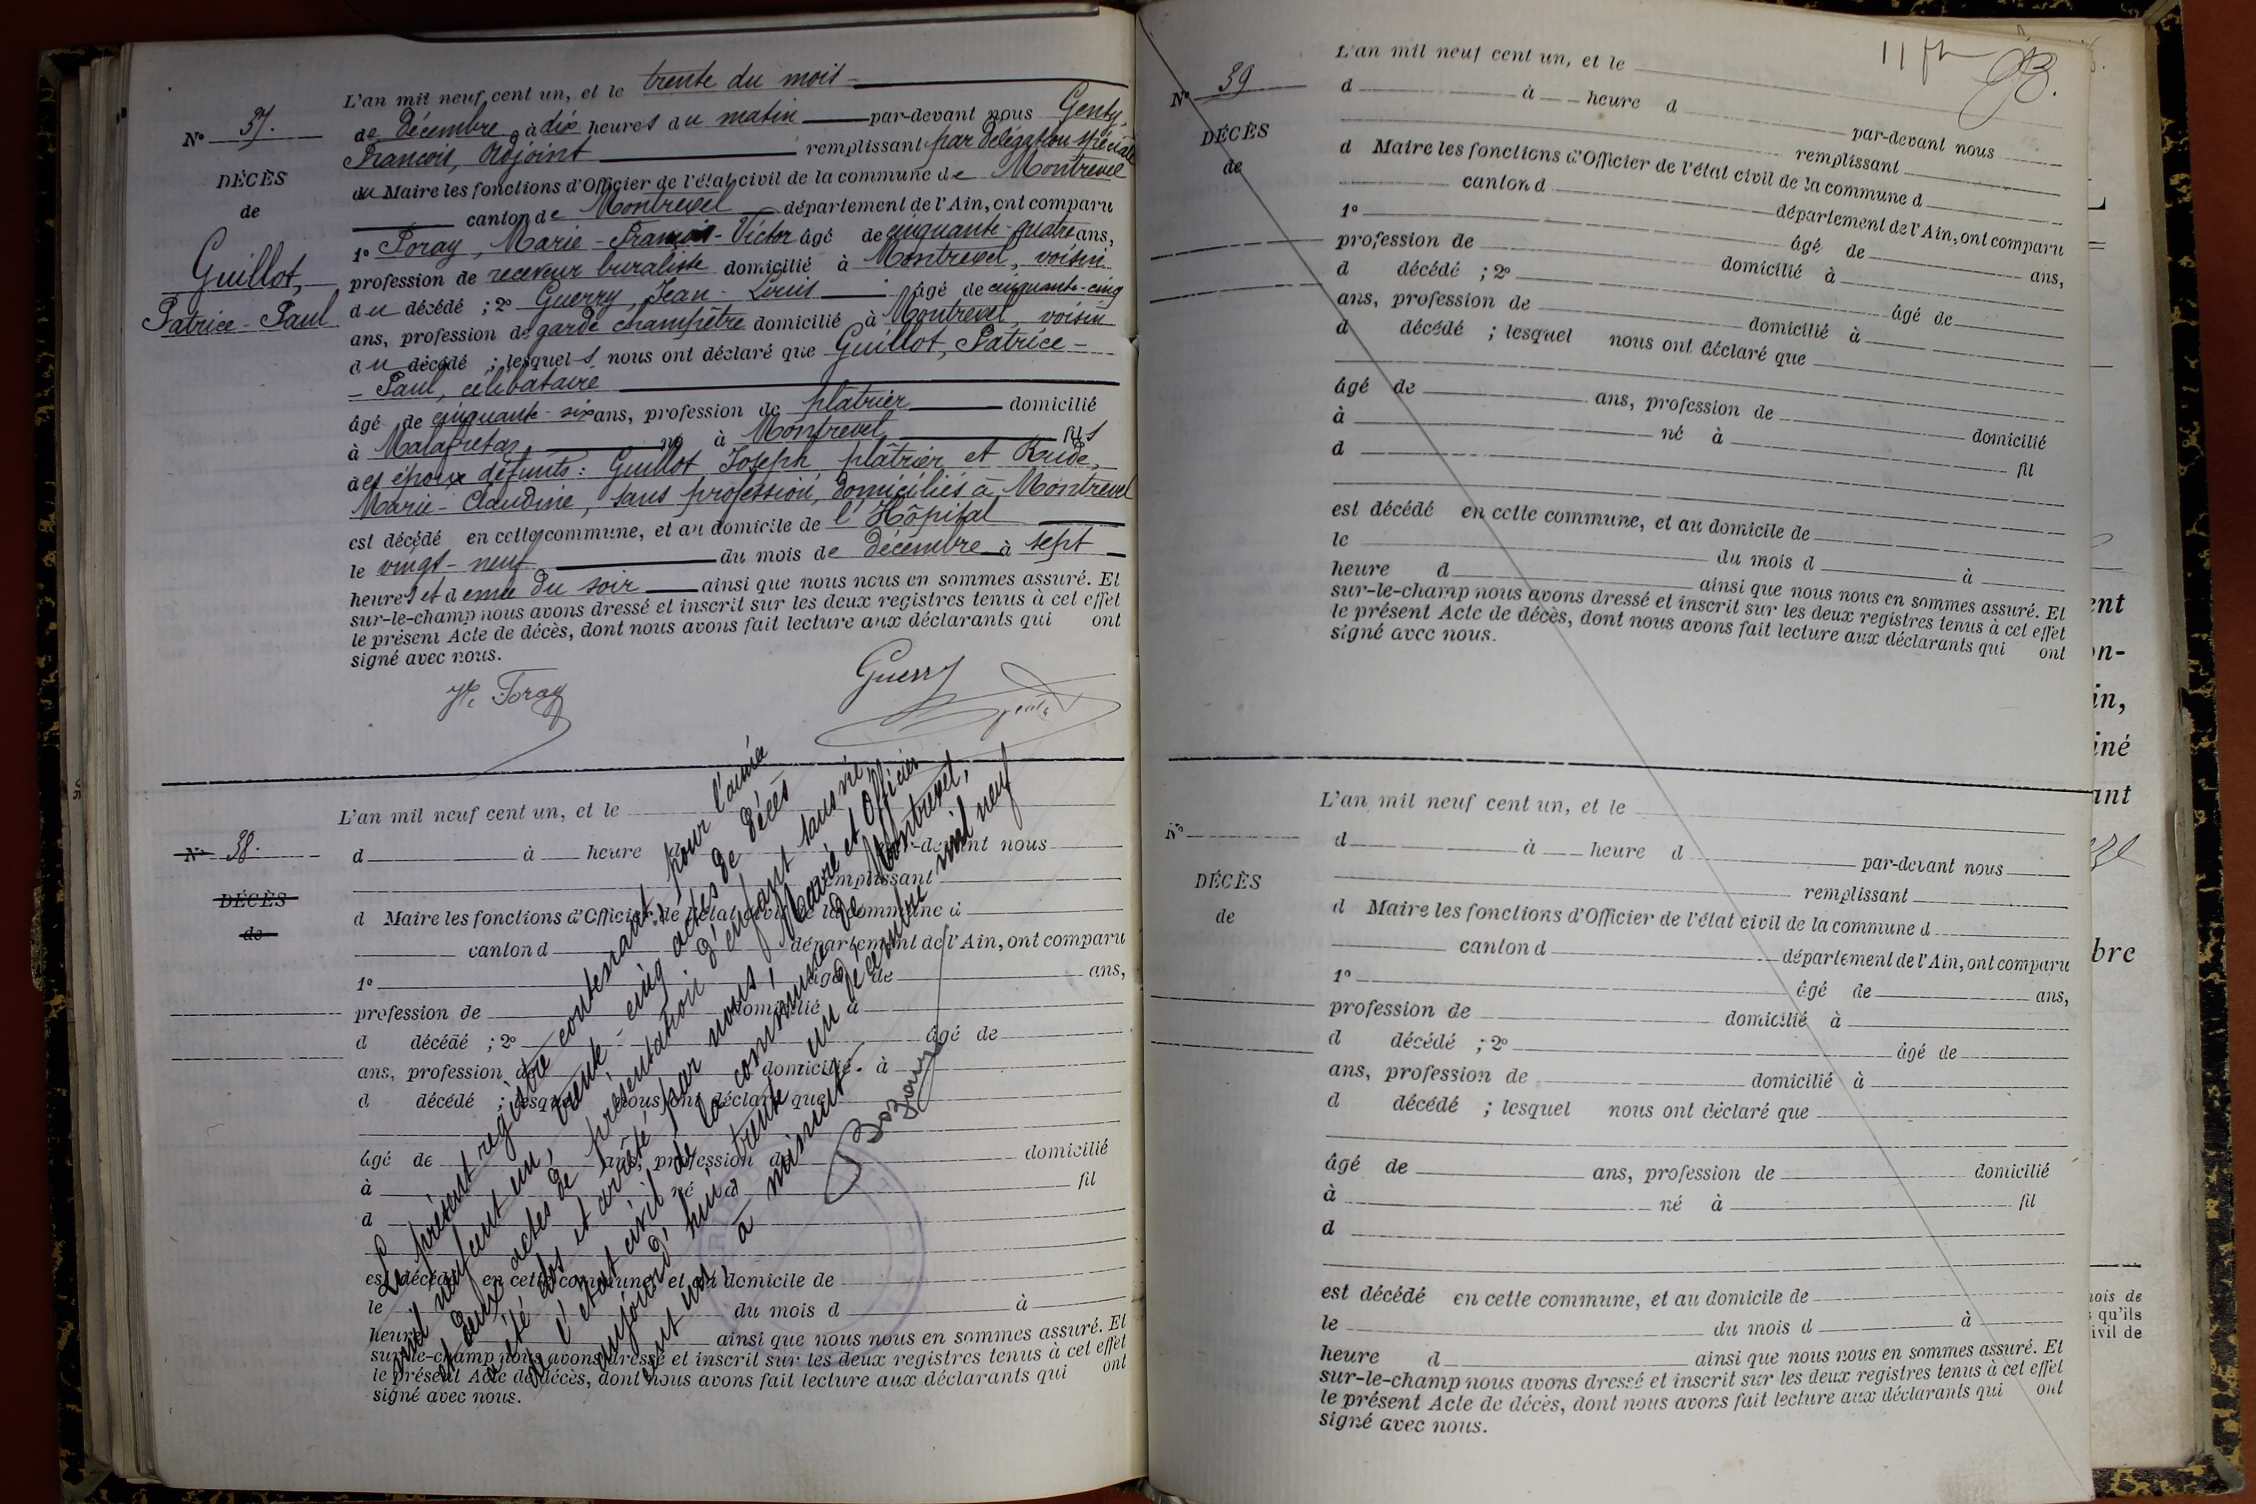 N° 37.
DÉCÈS
de
Guillot,
Patrice-Paul
L'an mil neuf cent un, et le trente du mois
de décembre à dix heures du matin par-devant nous Genty,
François, Adjoint remplissant par délégation spéciale
du Maire les fonctions d'Officier de l'état civil de la commune de Montrevel
canton de Montrevel département de l'Ain, ont comparu
1° Foray, Marie-François-Victor âgé de cinquante-quatre ans,
profession de receveur buraliste domicilié à Montrevel, voisin
du décédé ; 2° Guerry, Jean-Louis âgé de cinquante-cinq
ans, profession de garde champêtre domicilié à Montrevel voisin
du décédé ; lesquels nous ont déclaré que Guillot, Patrice-
-Paul, célibataire
âgé de cinquante-six ans, profession de plâtrier domicilié
à Malafretaz né à Montrevel fils
des époux défunts : Guillot Joseph plâtrier et Rude,
Marie-Claudine, sans profession, domiciliés à Montrevel
est décédé en cette commune, et au domicile de l'Hôpital
le vingt-neuf du mois de décembre à sept
heures et demie du soir ainsi que nous nous en sommes assuré. Et
sur-le-champ nous avons dressé et inscrit sur les deux registres tenus à cet effet
le présent Acte de décès, dont nous avons fait lecture aux déclarants qui ont
signé avec nous.
Foray
Guerry
Genty
N° 38.
DÉCÈS
de
L'an mil neuf cent un, et le
d à heure par-devant nous
remplissant
d Maire les fonctions d'Officier de l'état civil de la commune d
canton d département de l'Ain, ont comparu
1° âgé de ans,
profession de domicilié à
d décédé ; 2° âgé de
ans, profession de domicilié à
d décédé ; lesquel nous ont déclaré que
âgé de ans, profession de domicilié
à né à fil
d
est décédé en cette commune, et au domicile de
le du mois d à
heure ainsi que nous nous en sommes assuré. Et
sur-le-champ nous avons dressé et inscrit sur les deux registres tenus à cet effet
le présent Acte de décès, dont nous avons fait lecture aux déclarants qui ont
signé avec nous.
Le présent registre contenant, pour l'année
mil neuf cent un, trente-cinq actes de décès
et deux actes de présentation d'enfant sans vie,
a été clos et arrêté par nous, Maire et Officier
de l'état civil de la commune de Montrevel,
aujourd'hui trente un décembre mil neuf
cent un, à minuit
11
N° 39
DÉCÈS
de
L'an mil neuf cent un, et le
d à heure d
par-devant nous
remplissant
d Maire les fonctions d'Officier de l'état civil de la commune d
canton d département de l'Ain, ont comparu
1° âgé de ans,
profession de domicilié à
d décédé ; 2° âgé de
ans, profession de domicilié à
d décédé ; lesquel nous ont déclaré que
âgé de ans, profession de domicilié
à né à fil
d
est décédé en cette commune, et au domicile de
le du mois d à
heure d ainsi que nous nous en sommes assuré. Et
sur-le-champ nous avons dressé et inscrit sur les deux registres tenus à cet effet
le présent Acte de décès, dont nous avons fait lecture aux déclarants qui ont
signé avec nous.
N°
DÉCÈS
de
L'an mil neuf cent un, et le
d à heure d par-devant nous
remplissant
d Maire les fonctions d'Officier de l'état civil de la commune d
canton d département de l'Ain, ont comparu
1° âgé de ans,
profession de domicilié à
d décédé ; 2° âgé de
ans, profession de domicilié à
d décédé ; lesquel nous ont déclaré que
âgé de ans, profession de domicilié
à né à fil
d
est décédé en cette commune, et au domicile de
le du mois d à
heure d ainsi que nous nous en sommes assuré. Et
sur-le-champ nous avons dressé et inscrit sur les deux registres tenus à cet effet
le présent Acte de décès, dont nous avons fait lecture aux déclarants qui ont
signé avec nous.
ent
on-
in,
iné
ant
bre
nois de
qu'ils
ivil de